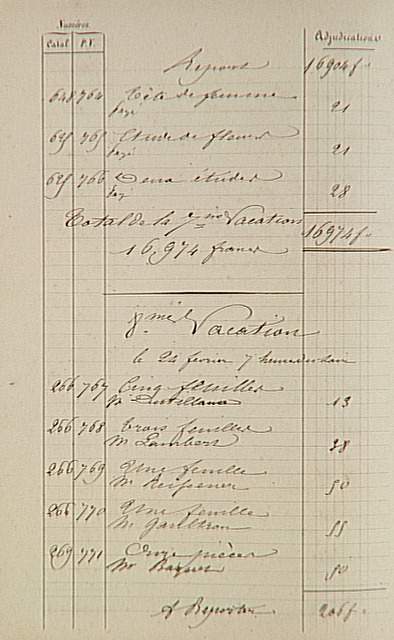 Numéros
Catal. P.V. Adjudications
Report 16904 f
648 764 Tête de femme 21
625 765 Etude de fleurs 21
625 766 Deux études 28
Total de la 7me Vacation 16974 f
16,974 francs
8me Vacation
le 24 fevrier 7 heures du soir
266 767 Cinq feuilles
Mr 13
266 768 Trois feuilles
Mr Lambert 38
266 769 Une feuille
Mr 50
266 770 Une feuille
Mr Gaultron 55
269 771 Onze pièces
Mr 50
A Reporter 206 f